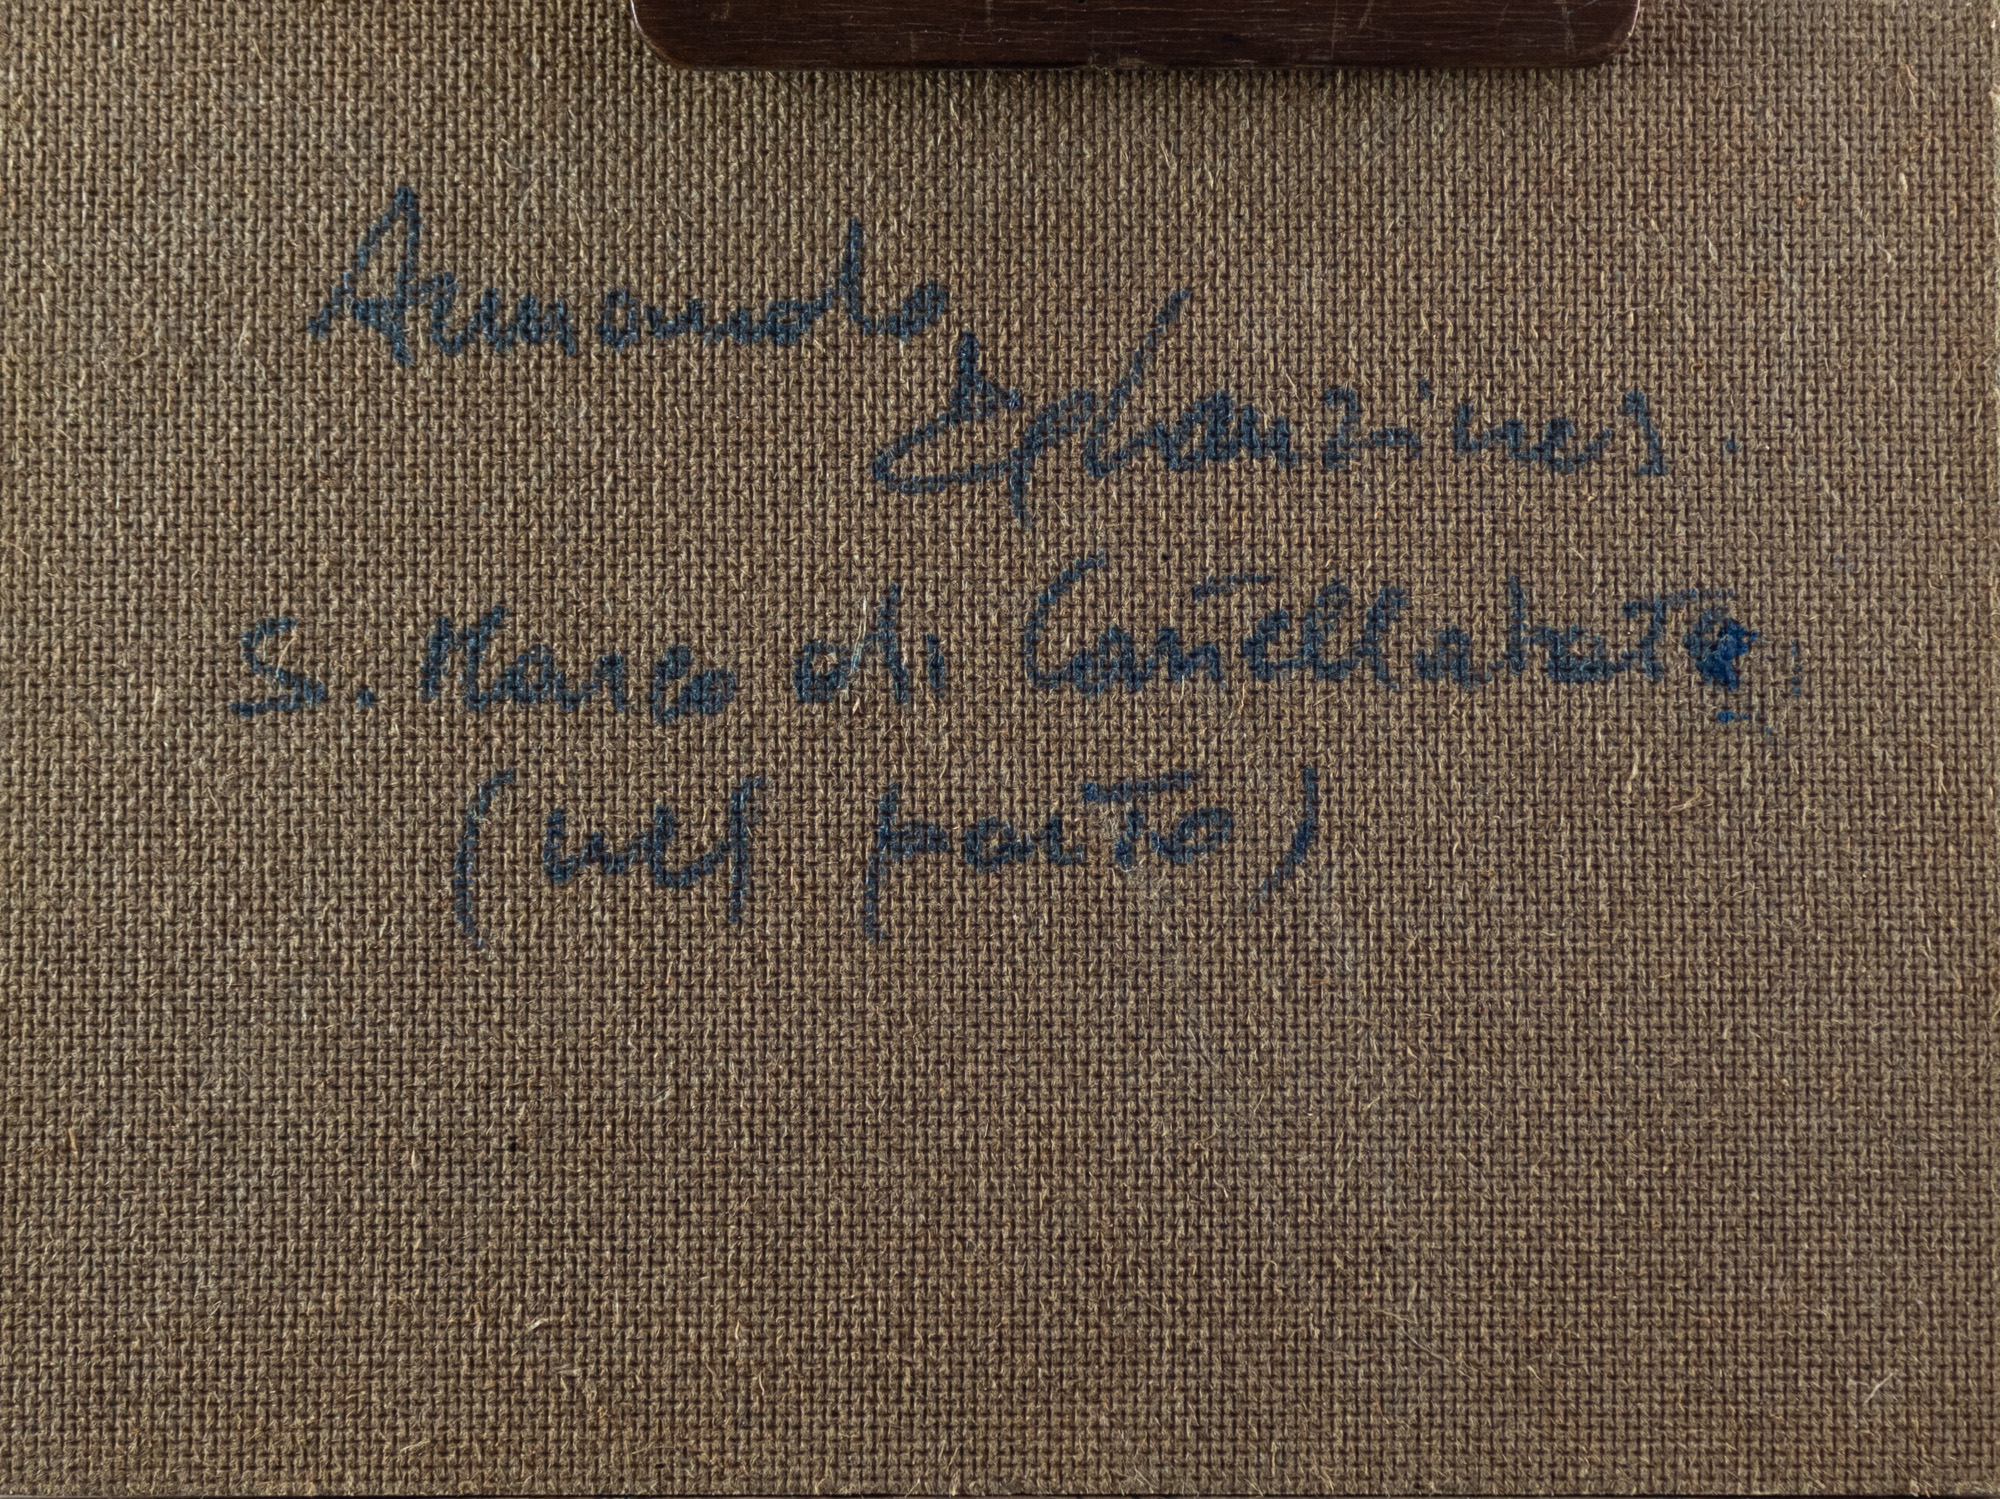 Armando
S. Marco di Castellabate
(nel porto)